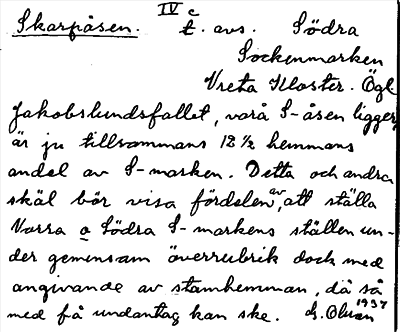 IV c
Skarpåsen. t. avs. Södra
Sockenmarken
Vreta Kloster. Ögl.
Jakobslundsfallet, varå S-åsen ligger,
är ju tillsammans 12 1/2 hemmans
andel av S-marken. Detta och andra
skäl bör visa fördelen av, att ställa
Norra o Södra S-markens ställen un-
der gemensam överrubrik dock med
angivande av stamhemman, då så
med få undantag kan ske. G. Olson 1937